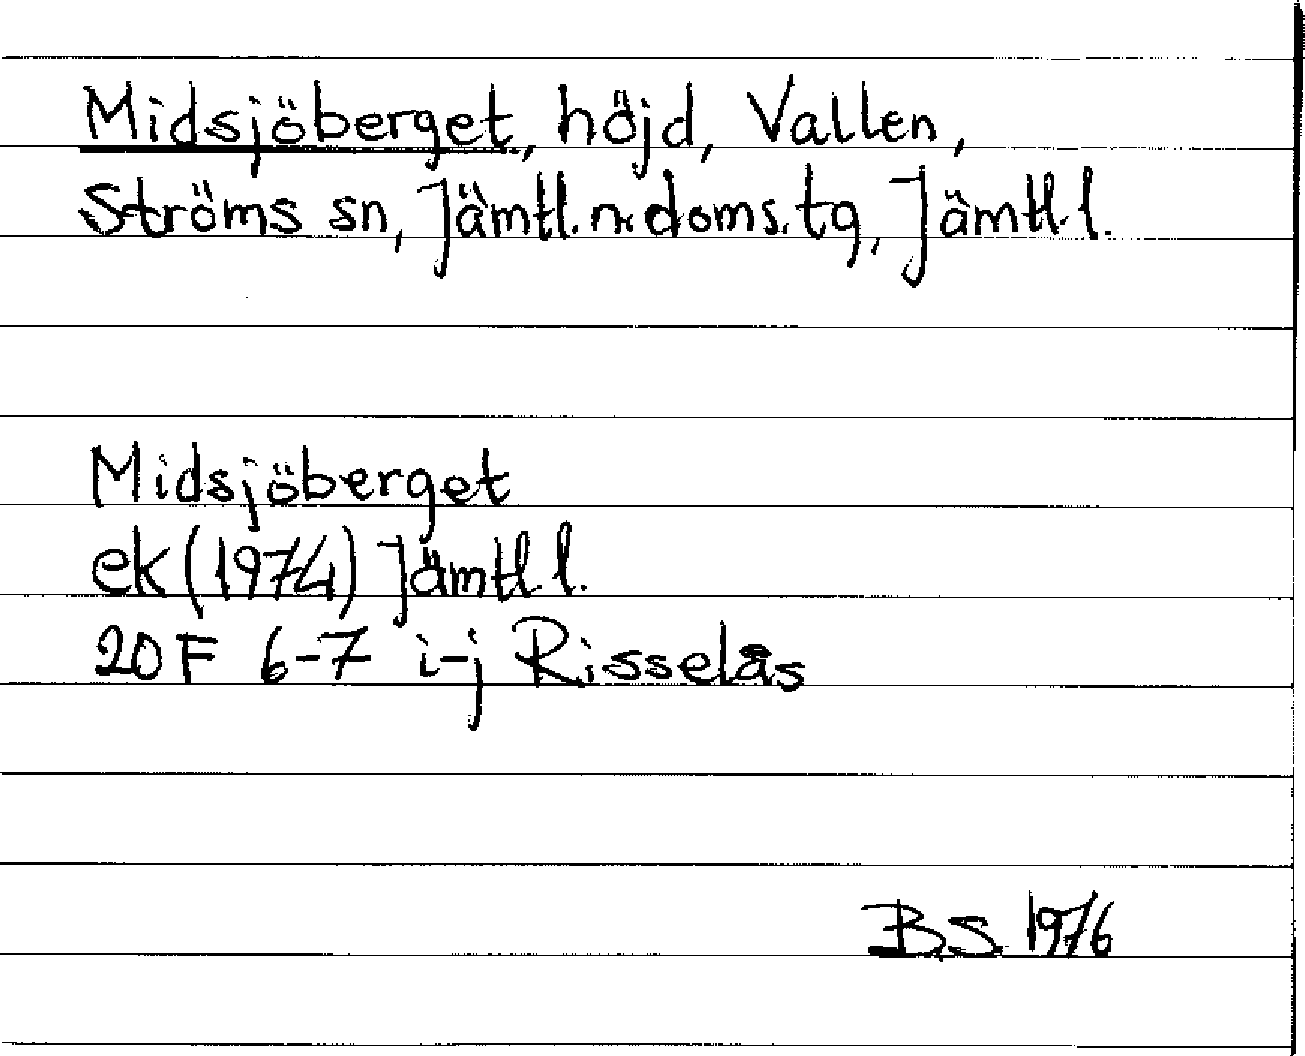 Midsjöberget, höjd, Vallen,
Ströms sn, Jämtl. n. doms. tg, Jämtl. l.
Midsjöberget
ek (1974) Jämtl l.
20 F 6-7 i-j Risselås
B.S. 1976